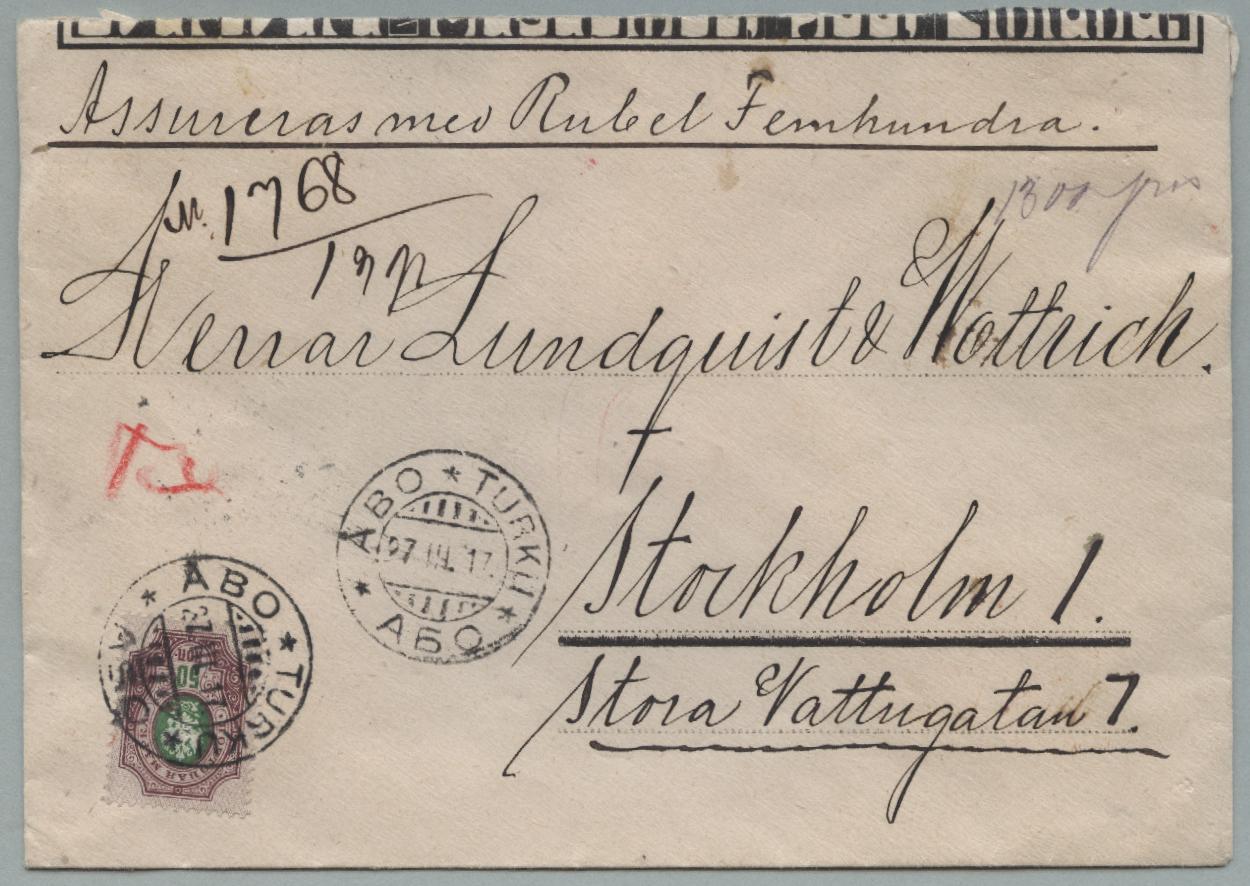 Assureras med Rubel Femhundra.
№ 1768
1300
Herrar Lundquist & Wottrich.
ÅBO * TURKU * АБО *
27.III.17
Stockholm 1.
Stora Vattugatan 7.
ÅBO * TURKU *
50